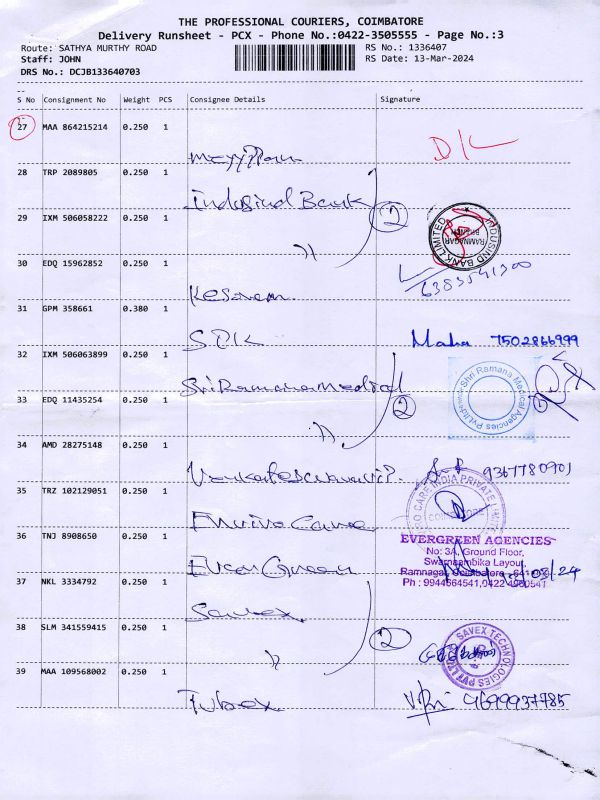 THE PROFESSIONAL COURIERS, COIMBATORE
Delivery Runsheet - PCX - Phone No.:0422-3505555 - Page No.:3
Route: SATHYA MURTHY ROAD RS No.: 1336407
Staff: JOHN RS Date: 13-Mar-2024
DRS No.: DCJB133640703
S No Consignment No Weight PCS Consignee Details Signature
27 MAA 864215214 0.250 1 D/L
28 TRP 2089805 0.250 1
Indusind Bank 2
29 IXM 506058222 0.250 1
INDUSIND BANK LIMITED RAMNAGAR BRANCH
30 EDQ 15962852 0.250 1
6383541300
31 GPM 358661 0.380 1
Maha 7502866999
32 IXM 506063899 0.250 1
Sri Ramana Medical 2
Shri Ramana Medical Agencies Pvt.Ltd
33 EDQ 11435254 0.250 1
34 AMD 28275148 0.250 1
9367780901
35 TRZ 102129051 0.250 1
CARE INDIA PRIVATE LIMITED
36 TNJ 8908650 0.250 1
EVERGREEN AGENCIES
No: 3A, Ground Floor,
Swarnambika Layout,
Ever Green
Ramnagar, Coimbatore
37 NKL 3334792 0.250 1
Ph : 9944664541,0422
Savex
38 SLM 341559415 0.250 1
2
SAVEX TECHNOLOGIES PVT LTD
39 MAA 109568002 0.250 1
Tubex 9699937785